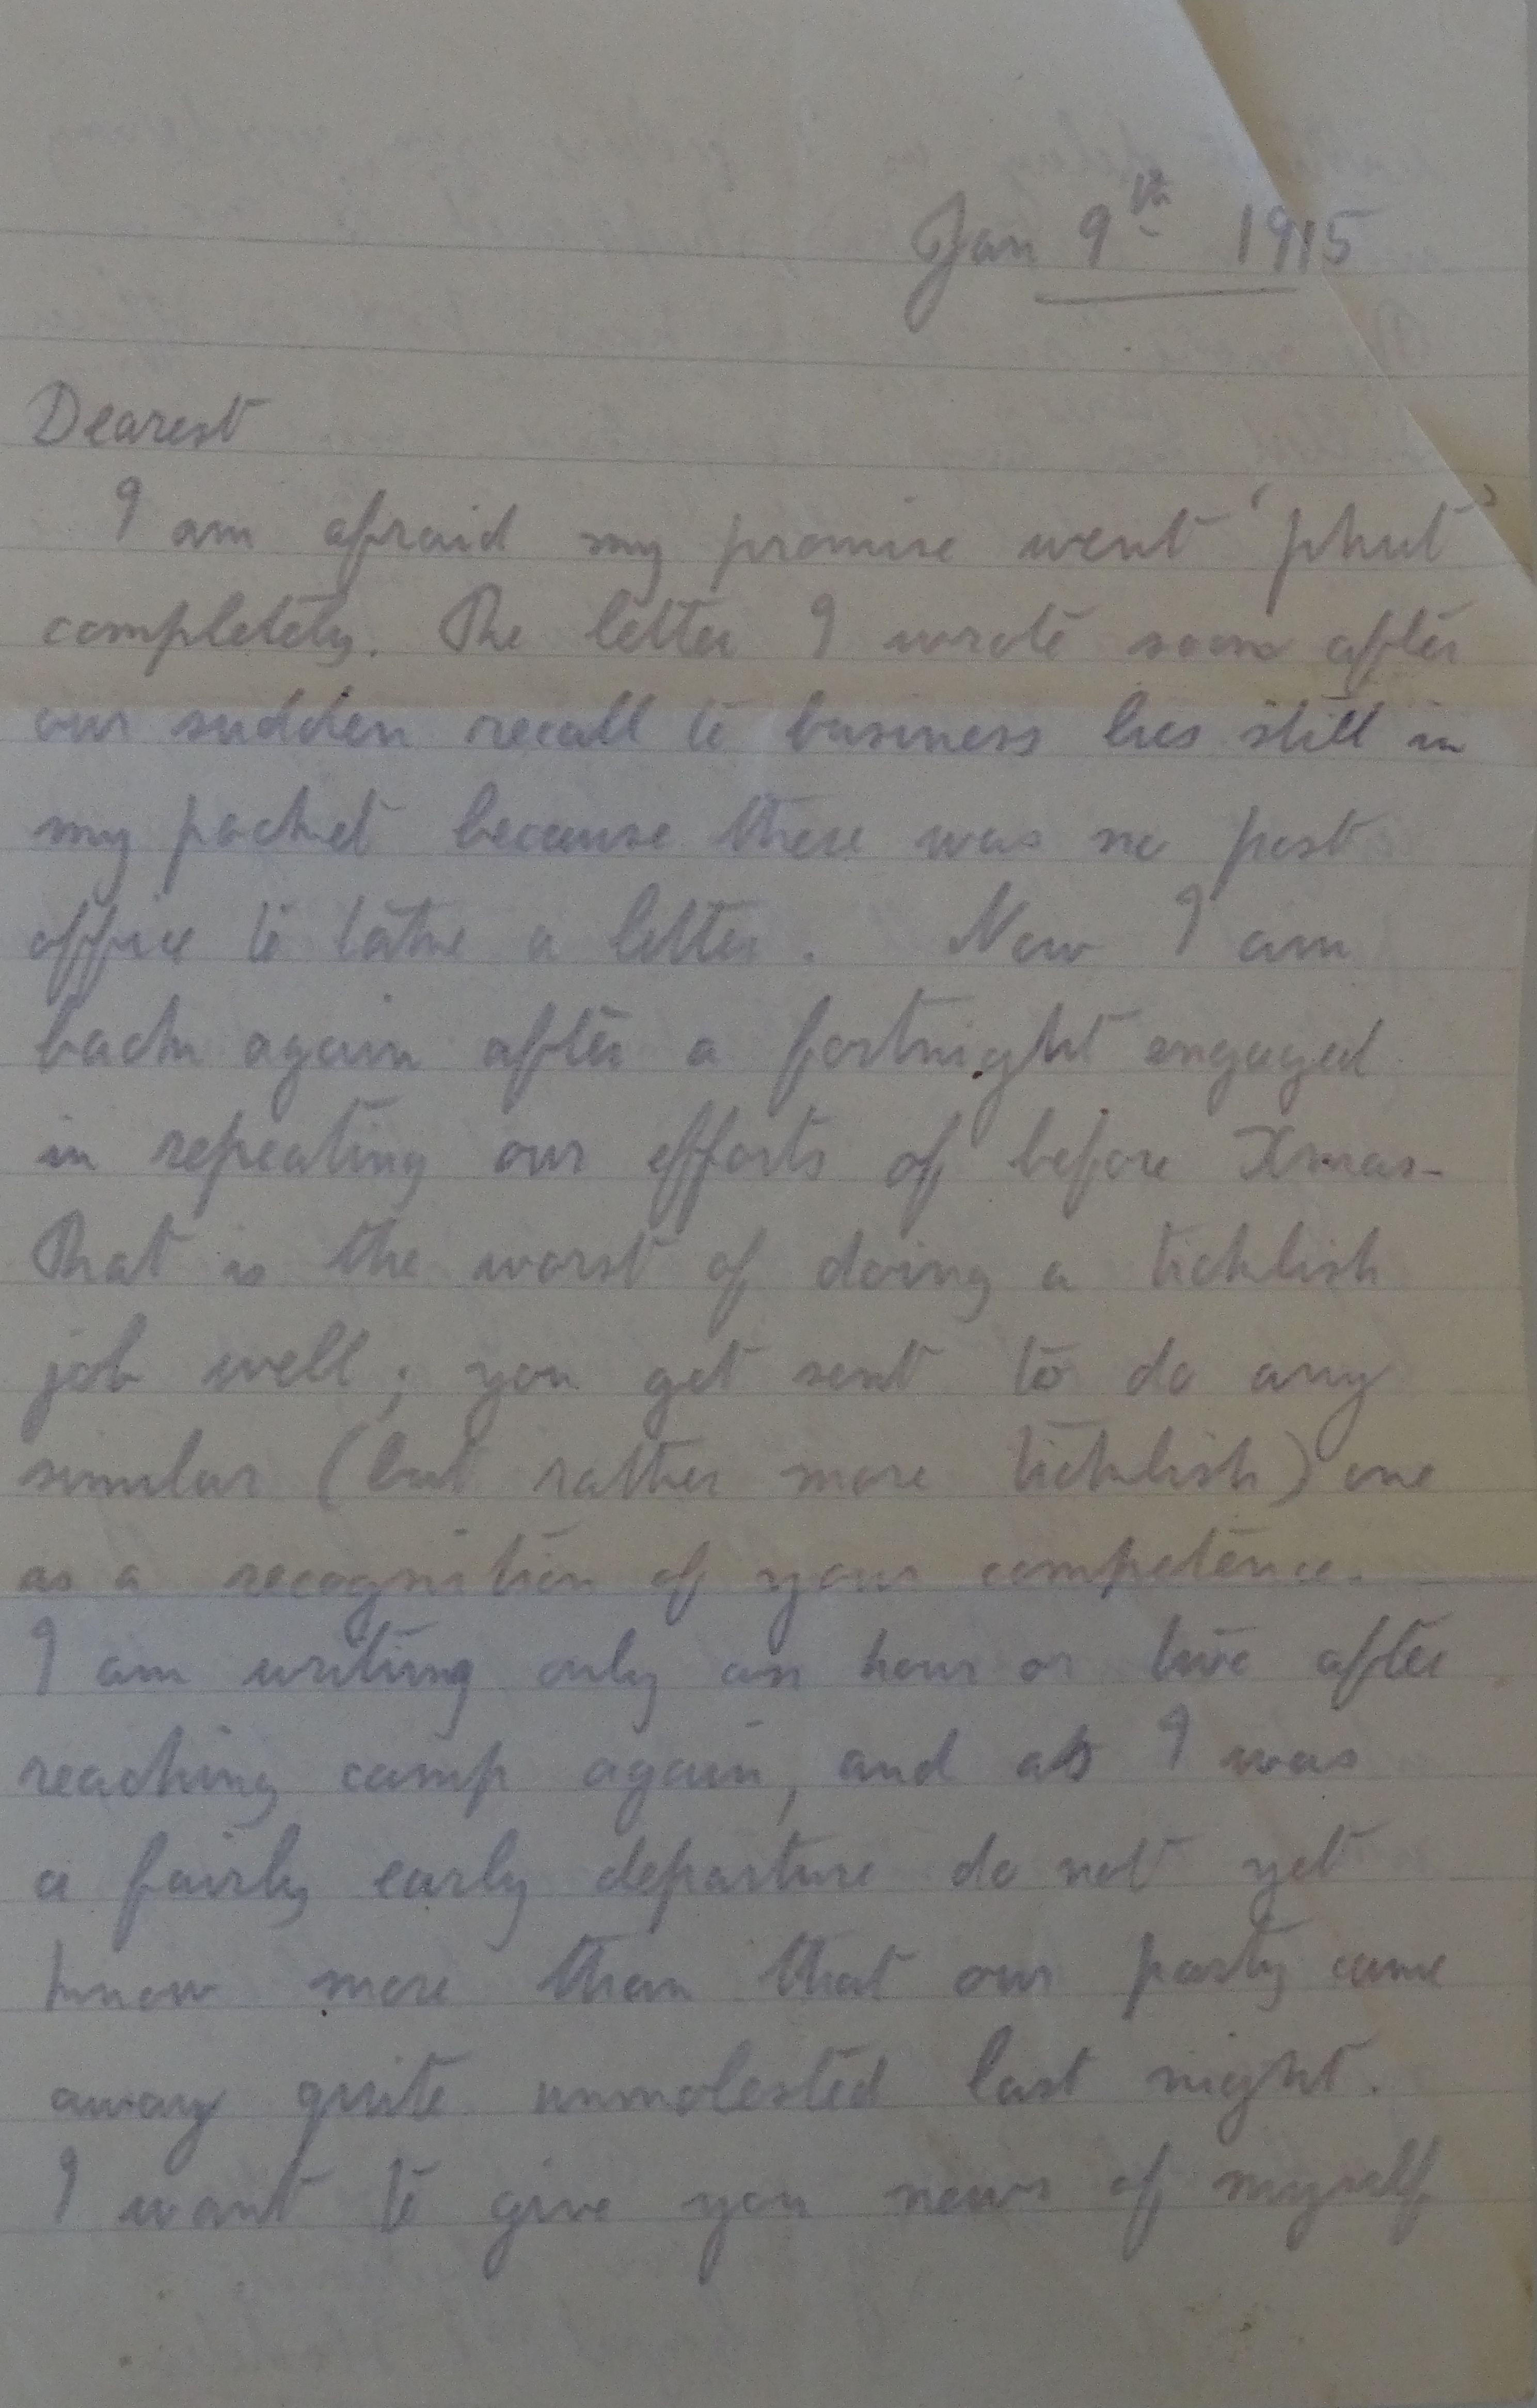 Jan 9th 1915
Dearest
I am afraid my promise went 'phut'
completely. The letter I wrote soon after
our sudden recall to business lies still in
my pocket because there was no post
office to take a letter. Now I am
back again after a fortnight engaged
in repeating our efforts of before Xmas-
That is the worst of doing a ticklish
job well; you get sent to do any
similar (but rather more ticklish) one
as a recognition of your competence.
I am writing only an hour or two after
reaching camp again, and as I was
a fairly early departure do not yet
know more than that our party came
away quite unmolested last night.
I want to give you news of myself